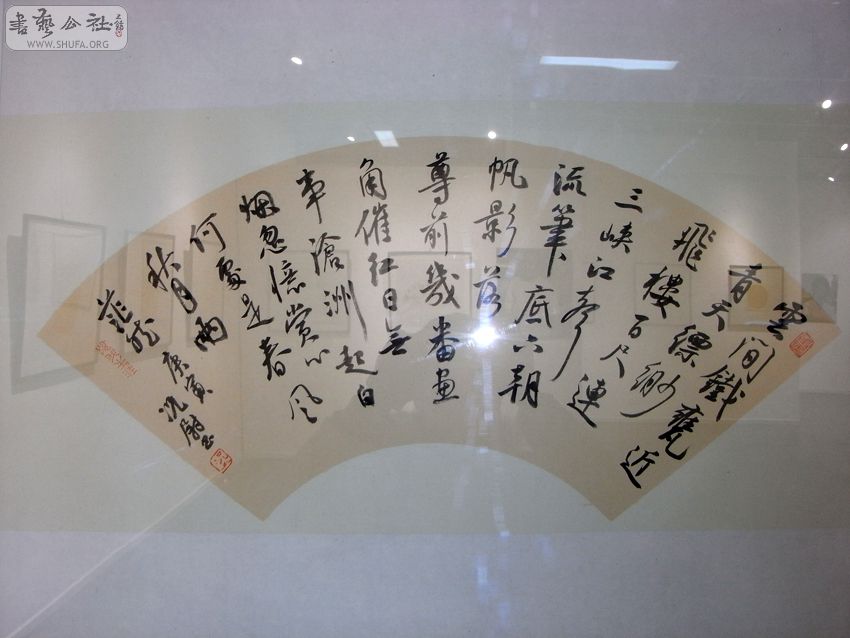 書藝公社
WWW.SHUFA.ORG
雲間鐵甕近
青天縹緲
飛樓百尺連
三峽江聲
流筆底六朝
帆影落
尊前幾番畫
角催紅日無
事滄洲起白
烟忽憶賞心
何處是春風
秋月兩
茫然
庚寅